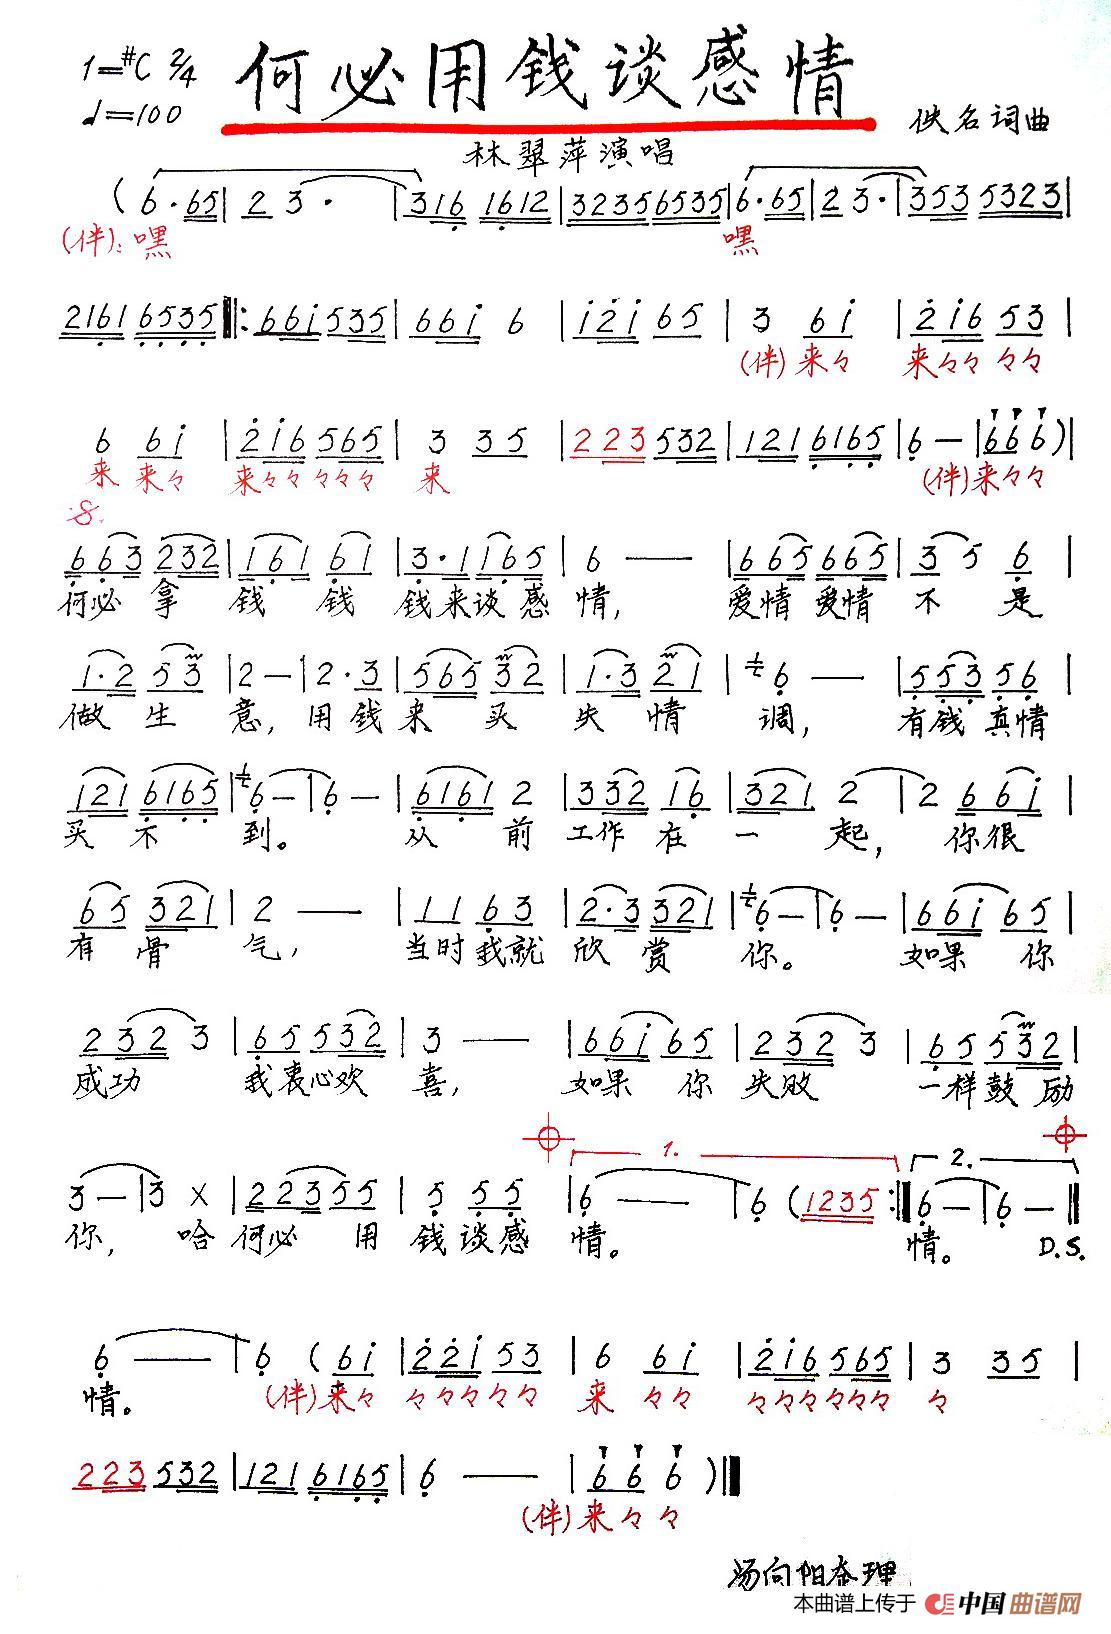 1=#C 2/4 何必用钱谈感情
♩=100 佚名词曲
林翠萍演唱
(6·65|2 3·|316 1612|32356535|6·65|2 3·|353 5323|
(伴):嘿 嘿
2161 6535‖:661535|661 6|121 65|3 61|216 53|
(伴)来々 来々々 々々
6 61|216 565|3 35|223 532|121 6165|6-|666)|
来 来々 来々々 々々々 来 (伴)来々々
663 232|161 61|3·1165|6 —|665 665|3 5 6|
何必 拿 钱 钱 钱来谈感 情, 爱情 爱情 不 是
1·2 53|2-|2·3|565 32|1·3 21|6 —|553 56|
做 生 意, 用 钱 来 买 失 情 调, 有钱 真情
121 6165|6-|6-|6161 2|332 16|321 2|2 661|
买 不 到。 从 前 工作 在 一 起, 你很
65 321|2 —|11 63|2·3 321|6-|6-|661 65|
有 骨 气, 当时 我就 欣 赏 你。 如果 你
232 3|65 532|3 —|661 65|232 3|65 532|
成功 我衷心欢 喜, 如果 你 失败 一样鼓励
1. 2.
3-|3 X|223 55|5 55|6 —|6 (1235:‖6-|6-‖
你, 哈 何必 用 钱 谈感 情。 情。 D.S.
6 —|6 (61|221 53|6 61|216 565|3 35|
情。 (伴)来々 々々々々々 来 々々 々々々々々々 々
223 532|121 6165|6 —|666)‖
(伴)来々々
汤向阳整理
本曲谱上传于 中国曲谱网